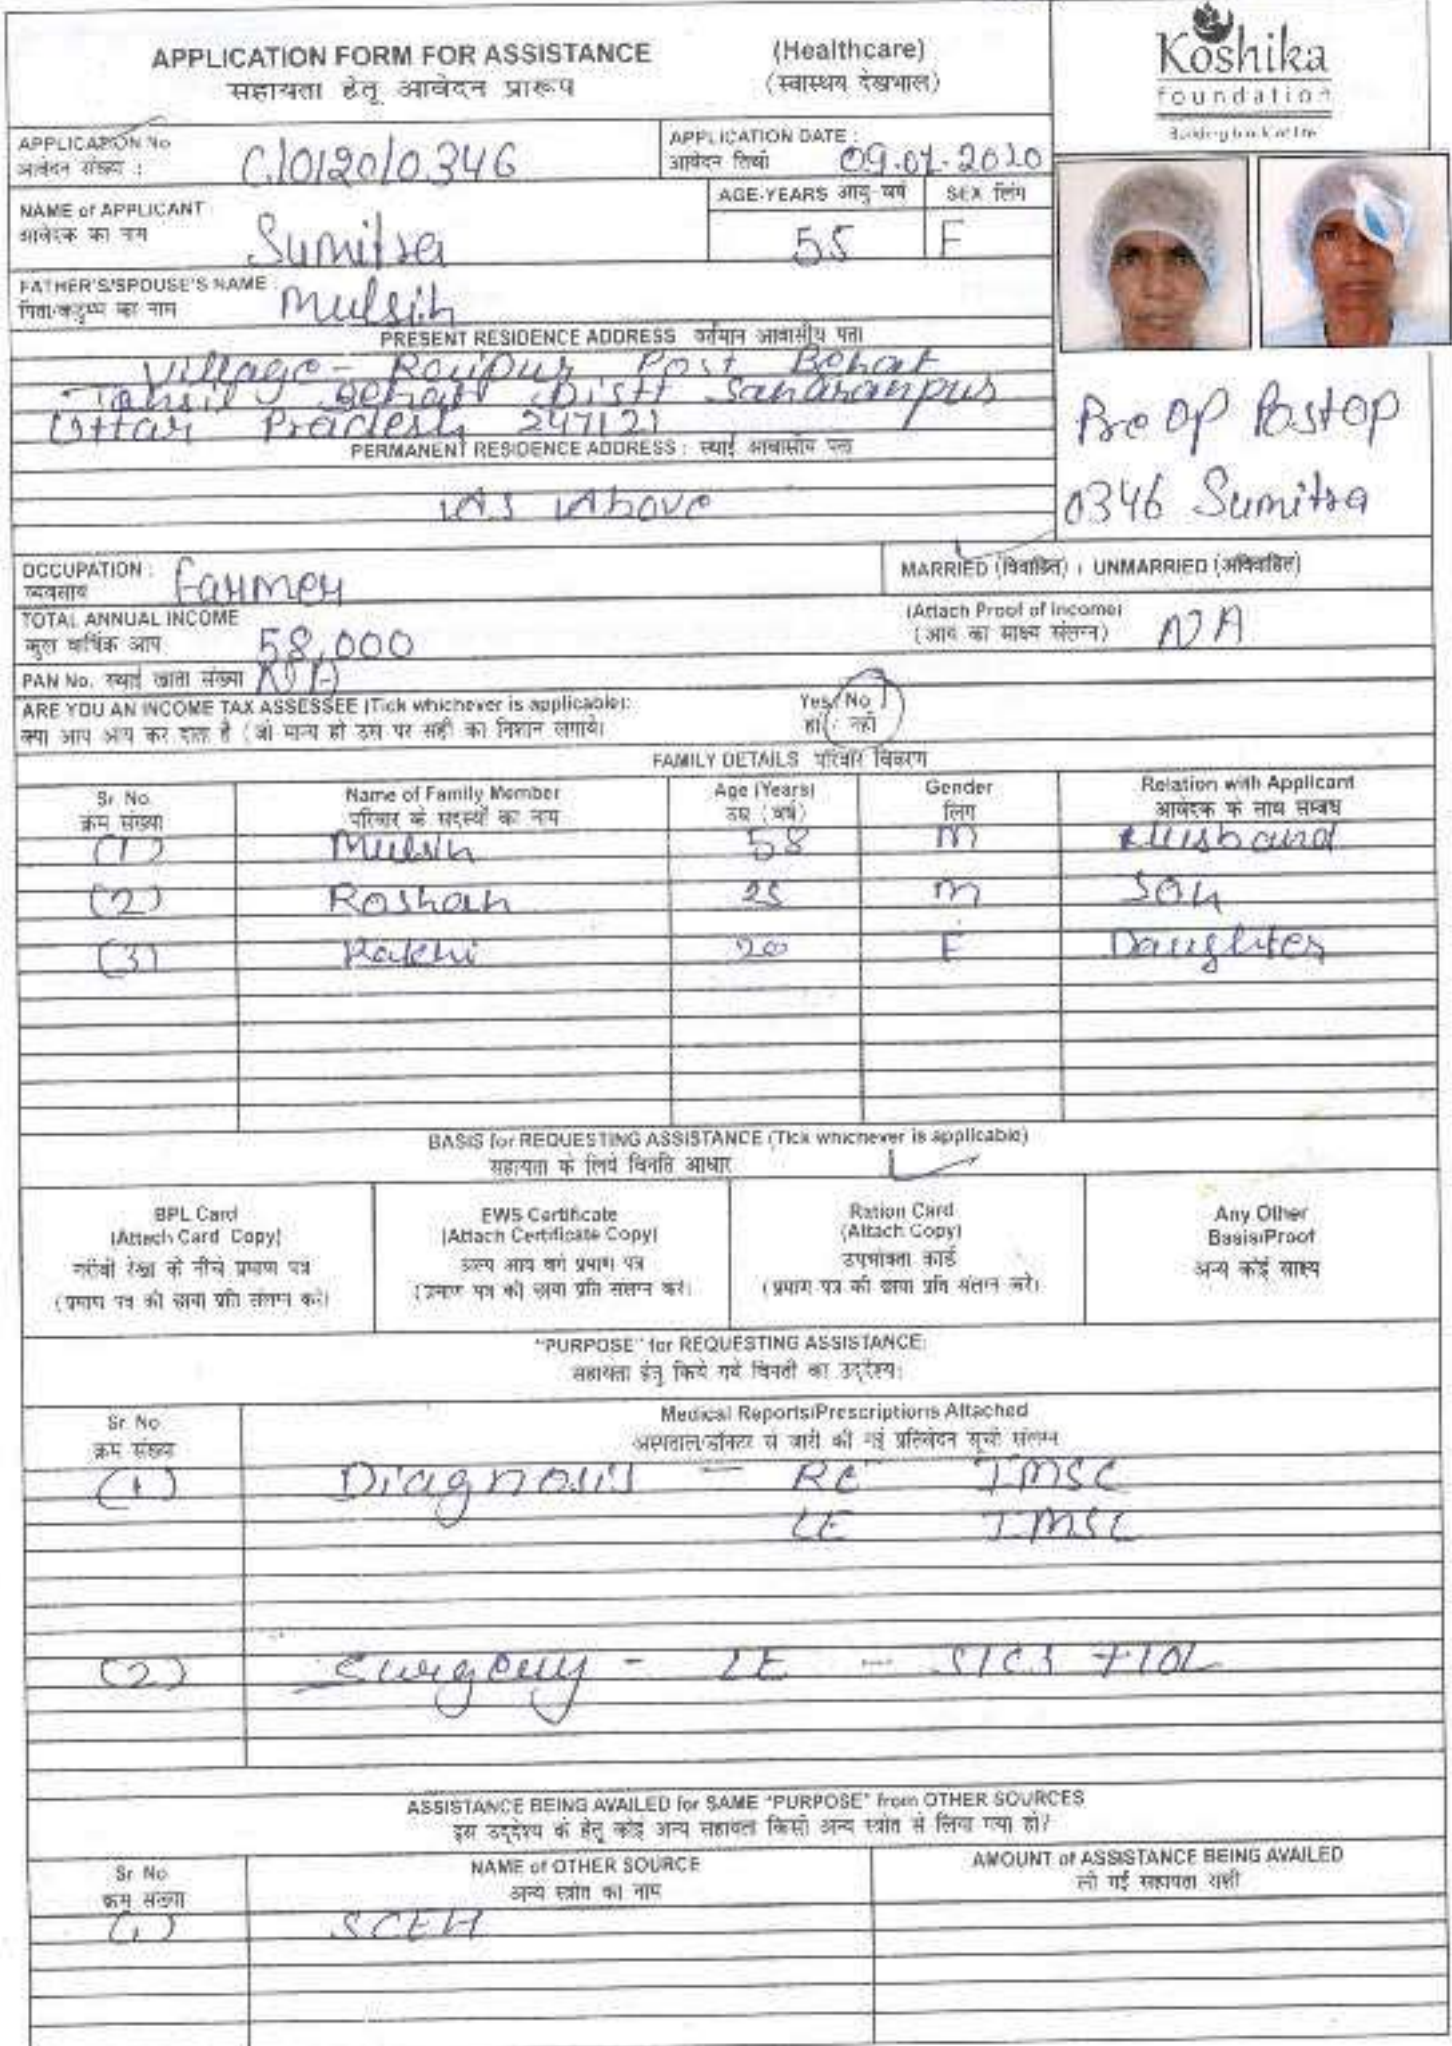 APPLICATION FORM FOR ASSISTANCE (Healthcare)
सहायता हेतू आवेदन प्रारूप (स्वास्थय देखभाल)
Koshika
foundation
APPLICATION No
आवेदन संख्या :
C/0120/0346
APPLICATION DATE :
आवेदन तिथी
09.01.2020
NAME of APPLICANT
आवेदक का नाम
Sumitra
AGE-YEARS आयु-वर्ष
55
SEX लिंग
F
FATHER'S/SPOUSE'S NAME :
पिता/ का नाम
Mulsih
PRESENT RESIDENCE ADDRESS वर्तमान आवासीय पता
Village - Raipur Post Behat
Tahsil Behat Distt Saharanpur
Uttar Pradesh 247121
PERMANENT RESIDENCE ADDRESS : स्थाई आवासीय पता
As Above
Pre op Postop
0346 Sumitra
OCCUPATION :
व्यवसाय
Farmer
MARRIED (विवाहित) / UNMARRIED (अविवाहित)
TOTAL ANNUAL INCOME
कुल वार्षिक आय
58,000
(Attach Proof of Income)
(आय का साक्ष्य संलग्न)
NA
PAN No. स्थाई खाता संख्या
NA
ARE YOU AN INCOME TAX ASSESSEE (Tick whichever is applicable):
क्या आप आय कर दाता है (जो मान्य हो उस पर सही का निशान लगाये)
Yes / No
हां / नहीं
FAMILY DETAILS परिवार विवरण
Sr. No. Name of Family Member Age (Years) Gender Relation with Applicant
क्रम संख्या परिवार के सदस्यों का नाम उम्र (वर्ष) लिंग आवेदक के साथ सम्बंध
(1) Mulsih 58 M Husband
(2) Roshan 25 M Son
(3) Rakhi 20 F Daughter
BASIS for REQUESTING ASSISTANCE (Tick whichever is applicable)
सहायता के लिये विनति आधार
BPL Card
(Attach Card Copy)
गरीबी रेखा के नीचे प्रमाण पत्र
(प्रमाण पत्र की छाया प्रति संलग्न करे)
EWS Certificate
(Attach Certificate Copy)
अल्प आय वर्ग प्रमाण पत्र
(प्रमाण पत्र की छाया प्रति संलग्न करे)
Ration Card
(Attach Copy)
उपभोक्ता कार्ड
(प्रमाण पत्र की छाया प्रति संलग्न करे)
Any Other
Basis/Proof
अन्य कोई साक्ष्य
"PURPOSE" for REQUESTING ASSISTANCE:
सहायता हेतु किये गये विनती का उद्देश्य:
Sr. No
क्रम संख्या
Medical Reports/Prescriptions Attached
अस्पताल/डॉक्टर से जारी की गई प्रतिवेदन सूची संलग्न
(1) Diagnosis - RE IMSC
LE IMSC
(2) Surgery - LE - SICS + IOL
ASSISTANCE BEING AVAILED for SAME "PURPOSE" from OTHER SOURCES
इस उद्देश्य के हेतू कोई अन्य सहायता किसी अन्य स्त्रोत से लिया गया हो?
Sr. No NAME of OTHER SOURCE AMOUNT of ASSISTANCE BEING AVAILED
क्रम संख्या अन्य स्त्रोत का नाम ली गई सहायता राशी
(1) SCEH